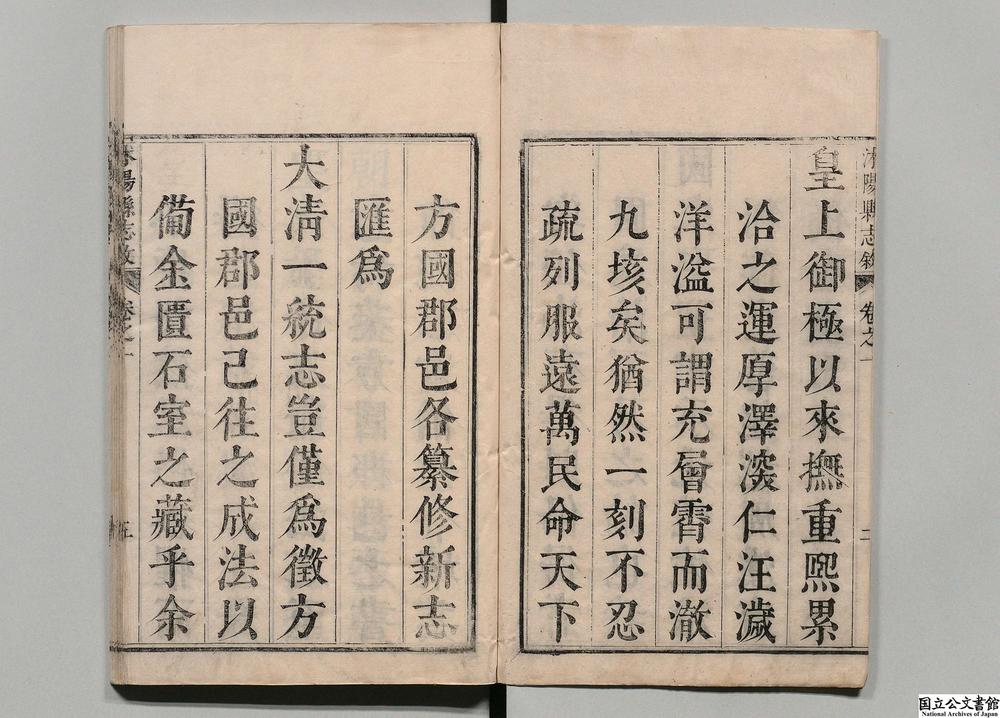 皇上御極以來撫重熙累
洽之運厚澤深仁汪濊
洋溢可謂充層霄而澈
九垓矣猶然一刻不忍
疏列服遠萬民命天下
方國郡邑各纂修新志
匯爲
大淸一統志豈僅爲徵方
國郡邑已往之成法以
備金匱石室之藏乎余
陽縣志敘
卷之一
二
陽縣志敘
卷之一
国立公文書館
National Archives of Japan